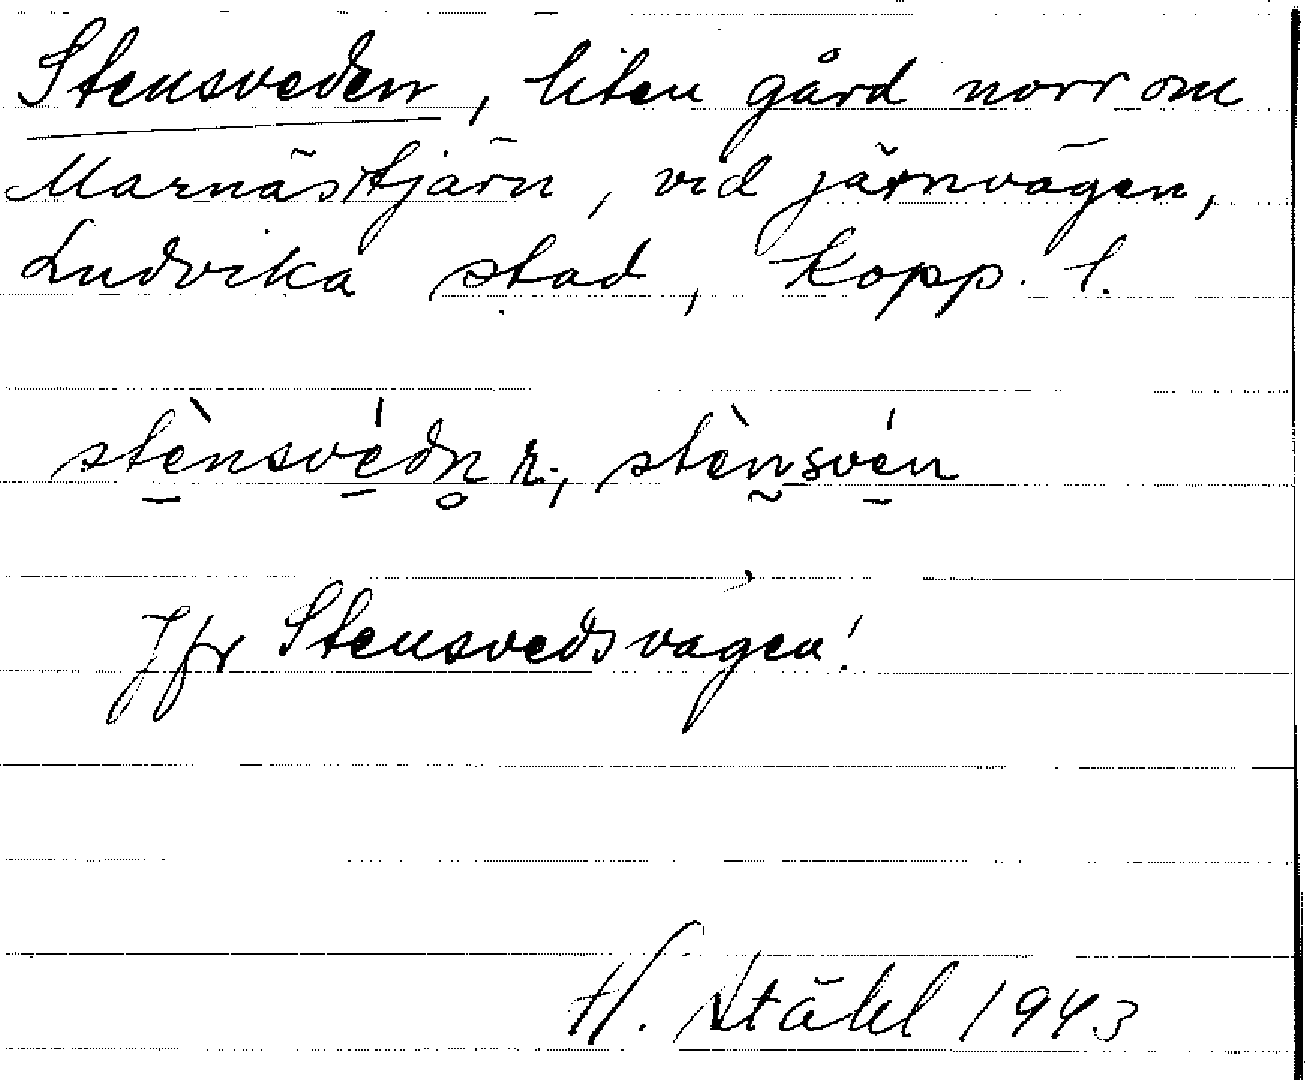 Stensveden, liten gård norr om
Marnästjärn, vid järnvägen,
Ludvika stad, Kopp. l.
stènsvédn̥ r., stènsvén
Jfr Stensvedsvägen!
H. Ståhl 1943